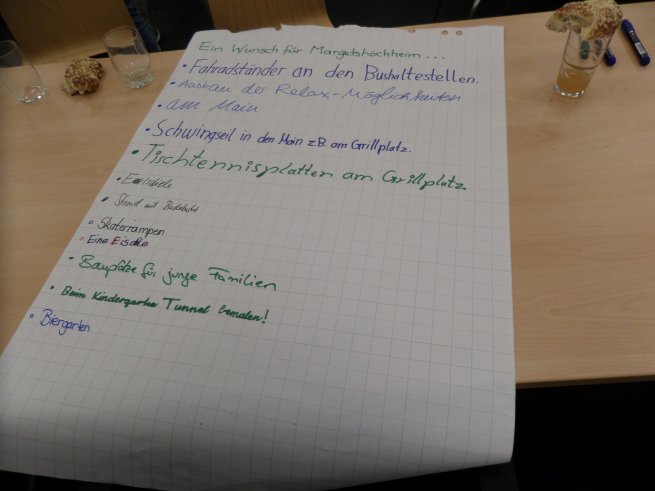 Ein Wunsch für Margetshöchheim...
• Fahradständer an den Bushaltestellen.
• Ausbau der Relax-Möglichkeiten
• am Main
• Schwingseil in den Main z.B. am Grillplatz.
• Tischtennisplatten am Grillplatz.
• Strand mit
• Skaterrampen
• Eine Eisdiele
• Bauplätze für junge Familien
• Beim Kindergarten Tunnel bemalen!
• Biergarten